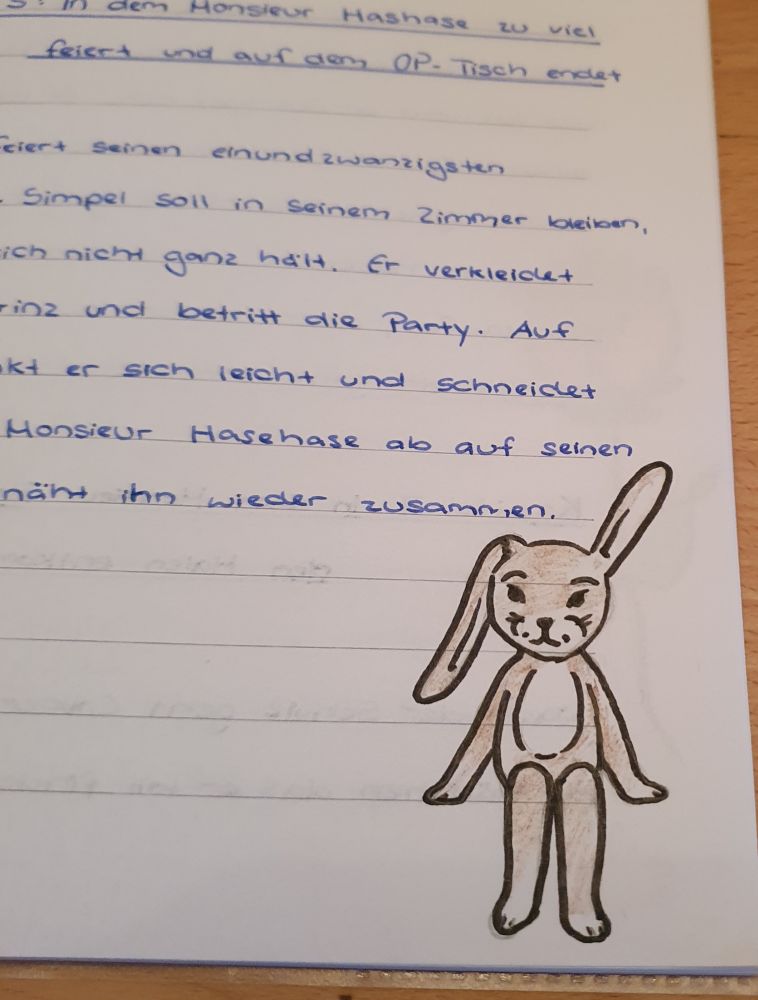 in dem Monsieur Hashase zu viel
feiert und auf dem OP-Tisch endet
feiert seinen einundzwanzigsten
. Simpel soll in seinem Zimmer bleiben,
ich nicht ganz hält. Er verkleidet
rinz und betritt die Party. Auf
kt er sich leicht und schneidet
Monsieur Hasehase ab auf seinen
näht ihn wieder zusammen.